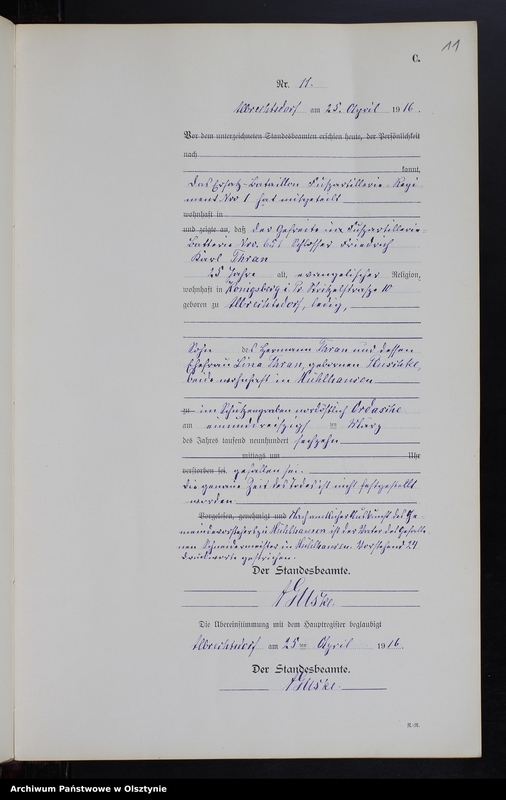 C.
11
Nr. 11.
Albrechtsdorf am 25. April 1916.
Vor dem unterzeichneten Standesbeamten erschien heute, der Persönlichkeit
nach
kannt,
Das Ersatz-Bataillon Fußartillerie-Regi-
ment Nro 1 hat mitgeteilt
wohnhaft in
und zeigte an, daß der Gefreite in Fußartillerie-
Batterie Nro. 651 Schlosser Friedrich
Karl Thran
25 Jahre alt, evangelischer Religion,
wohnhaft in Königsberg i. Pr. 10
geboren zu Albrechtsdorf, ledig,
Sohn des Hermann Thran und dessen
Ehefrau Lina Thran, gebornen
beide wohnhaft in Mühlhausen
zu im Schützengraben nordöstlich
am einunddreißigsten März
des Jahres tausend neunhundert sechzehn
mittags um Uhr
verstorben sei. gefallen sei.
Die genaue Zeit des Todes ist nicht festgestellt
worden.
Vorgelesen, genehmigt und Nach amtlicher Auskunft des Ge-
meindevorstehers zu Mühlhausen ist der Vater des Gefalle-
nen Schneidermeister in Mühlhausen. Vorstehend 24
Druckworte gestrichen.
Der Standesbeamte.
Die Übereinstimmung mit dem Hauptregister beglaubigt
Albrechtsdorf am 25ten April 1916.
Der Standesbeamte.
Archiwum Państwowe w Olsztynie